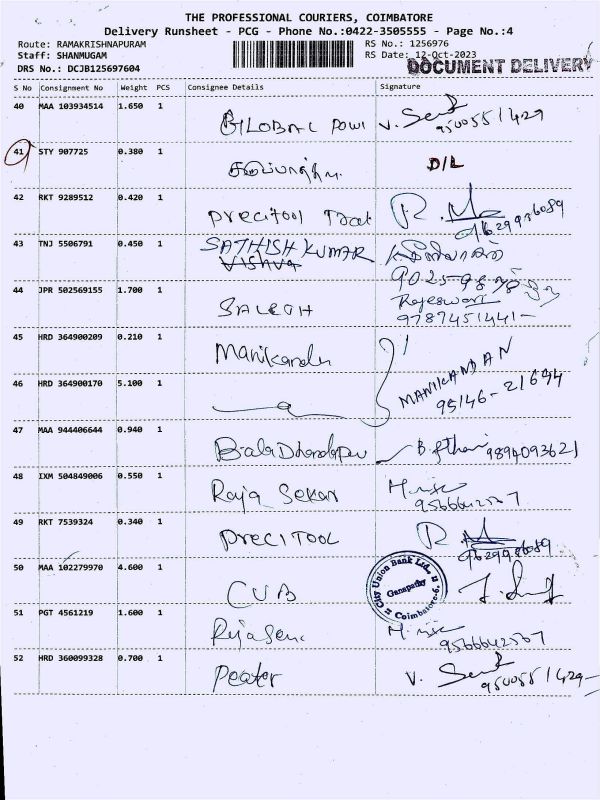 THE PROFESSIONAL COURIERS, COIMBATORE
Delivery Runsheet - PCG - Phone No.:0422-3505555 - Page No.:4
Route: RAMAKRISHNAPURAM RS No.: 1256976
Staff: SHANMUGAM RS Date: 12-Oct-2023
DRS No.: DCJB125697604 DOCUMENT DELIVERY
S No Consignment No Weight PCS Consignee Details Signature
40 MAA 103934514 1.650 1 V.
41 STY 907725 0.380 1 D/L
42 RKT 9289512 0.420 1 Precitool R.
43 TNJ 5506791 0.450 1 SATHISH KUMAR
Vishva
44 JPR 502569155 1.700 1 Rajeswari
9787451441
45 HRD 364900209 0.210 1 Manikandn
46 HRD 364900170 5.100 1 MANIKANDAN
95146-21694
47 MAA 944406644 0.940 1 9894093621
48 IXM 504849006 0.550 1 Raja Sekar
9566642567
49 RKT 7539324 0.340 1 PRECITOOL R
50 MAA 102279970 4.600 1 CUB City Union Bank Ltd., Ganapathy Coimbatore-6.
51 PGT 4561219 1.600 1
9566642567
52 HRD 360099328 0.700 1 Peater V.